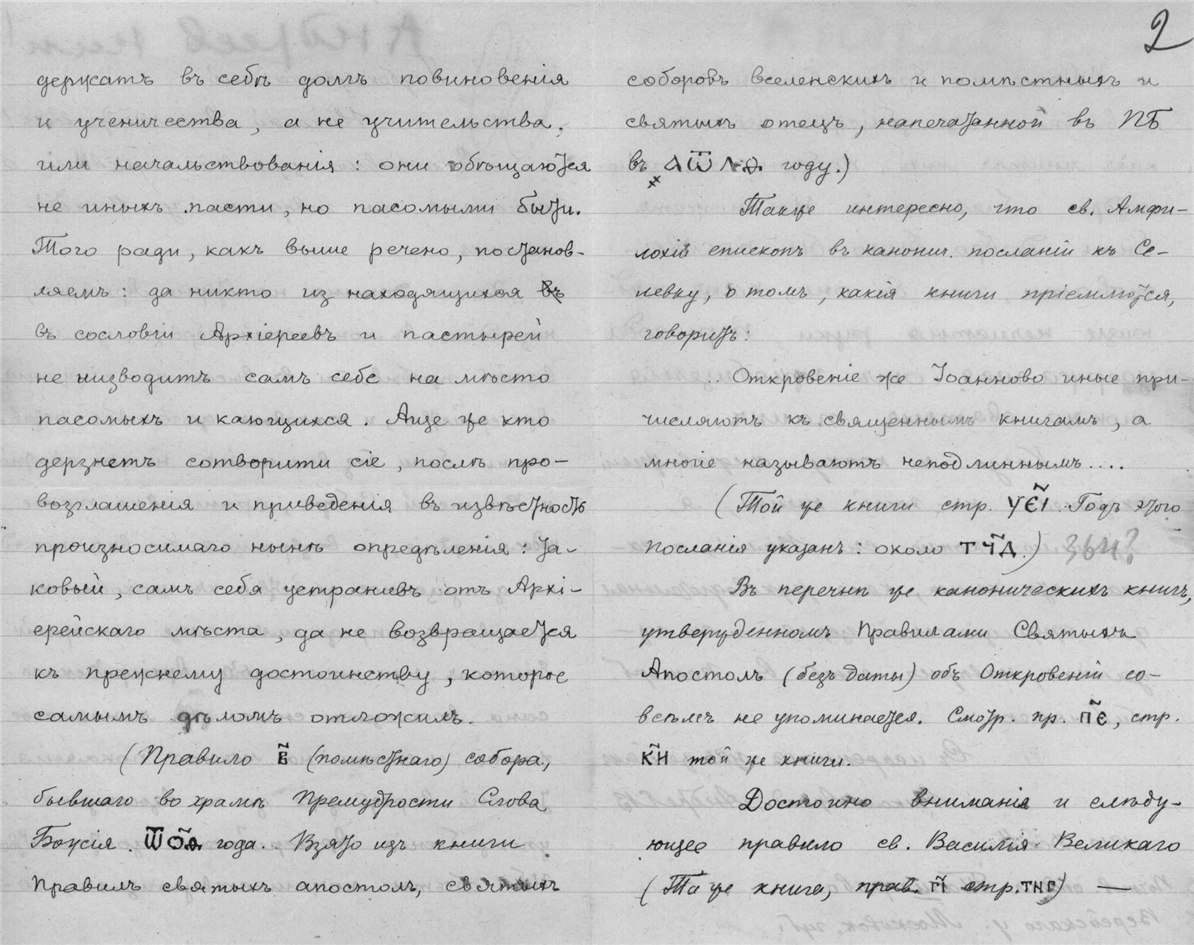 держатъ въ себѣ долгъ повиновенія
и ученичества, а не учительства,
или начальствованія: они обѣщаются
не иныхъ пасти, но пасомыми быти.
Того ради, какъ выше речено, постанов-
ляемъ: да никто из находящихся въ
въ сословіи Архіереевъ и пастырей
не низводитъ самъ себе на мѣсто
пасомыхъ и кающихся. Аще же кто
дерзнетъ сотворити сіе, послѣ про-
возглашенія и приведенія въ извѣстность
произносимаго нынѣ опредѣленія: та-
ковый, самъ себя устранивъ отъ Архі-
ерейскаго мѣста, да не возвращается
къ прежнему достоинству, которое
самымъ дѣломъ отложилъ.
(Правило в҃ (помѣстнаго) собора,
бывшаго во храмѣ Премудрости Слова
Божія. ѿо҃ѳ года. Взято изъ книги
Правилъ святыхъ апостолъ, святыхъ
2
соборовъ вселенскихъ и помѣстныхъ и
святыхъ отецъ, напечатанной въ ПБ
въ ҂аѿлѳ году.)
Также интересно, что св. Амфи-
лохій епископъ въ канонич. посланіи къ Се-
левку, о томъ, какія книги пріемлются,
говоритъ:
.. Откровеніе же Іоанново иные при-
числяютъ къ священнымъ книгамъ, а
многіе называютъ неподлиннымъ....
(Той же книги стр. уєі҃. Годъ этого
посланія указанъ: около тч҃д.) 364?
Въ перечнѣ же каноническихъ книгъ,
утвержденномъ Правилами Святыхъ
Апостолъ (безъ даты) объ Откровеніи со-
всѣмъ не упоминается. Смотр. пр. п҃є, стр.
к҃и той же книги.
Достойно вниманія и слѣду-
ющее правило св. Василія Великаго
(Та же книга, прав. г҃і стр. тнг) —